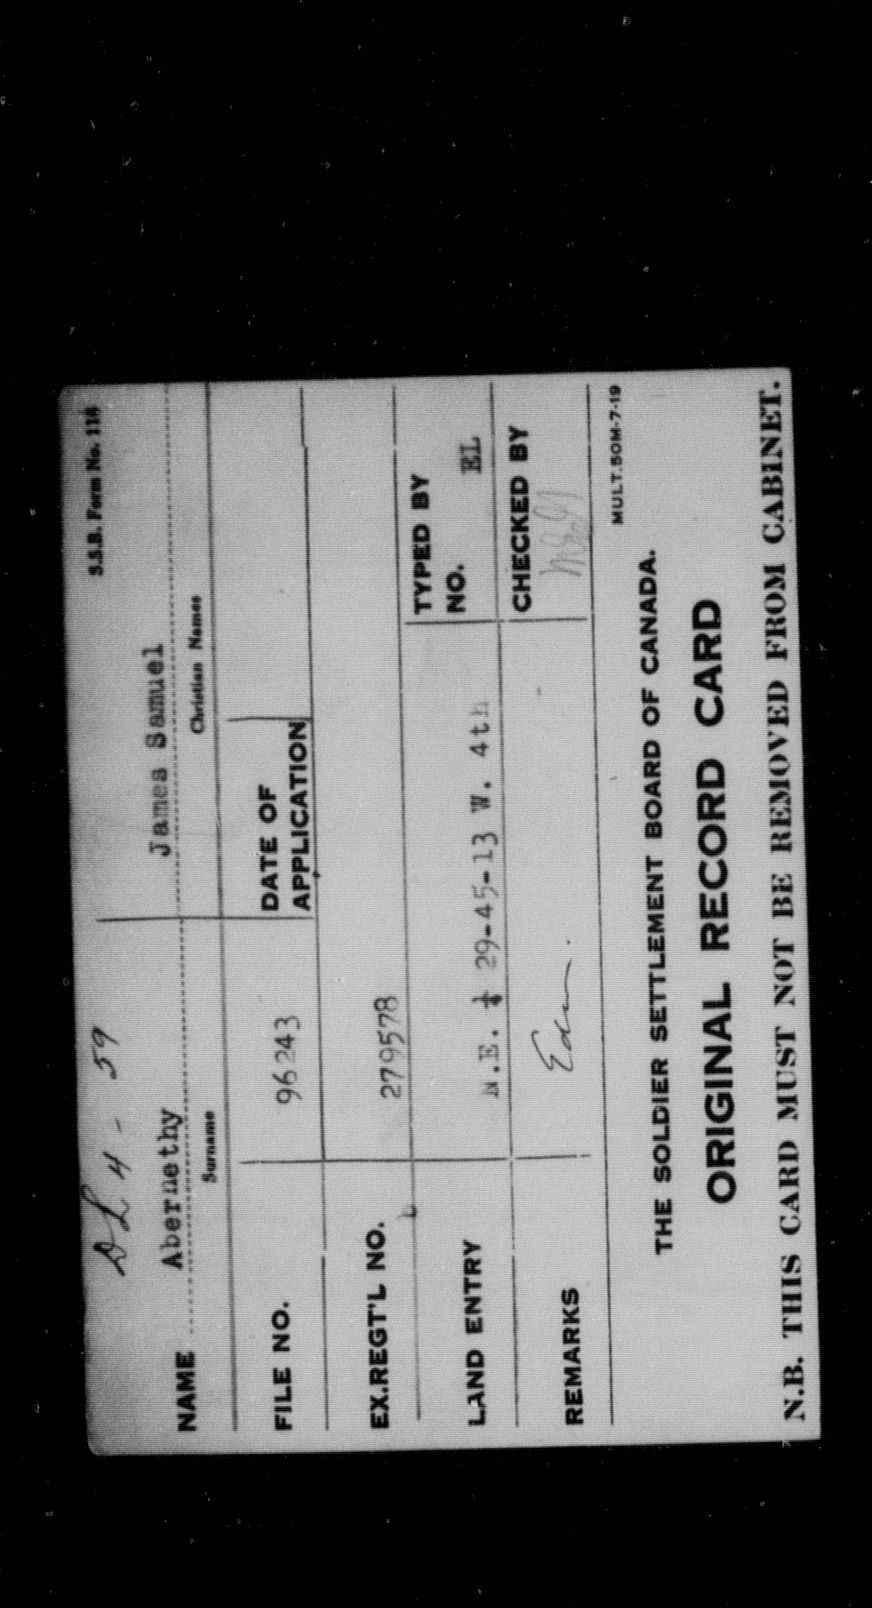 DL 4 - 59
S.S.B. Form No. 116
NAME Abernethy James Samuel
Surname Christian Names
FILE NO. 96243 DATE OF APPLICATION
EX.REGT'L NO. 279578
b
LAND ENTRY N.E. ¼ 29-45-13 W. 4th TYPED BY NO. EL
REMARKS Edm. CHECKED BY
MULT.50M-7-19
THE SOLDIER SETTLEMENT BOARD OF CANADA.
ORIGINAL RECORD CARD
N.B. THIS CARD MUST NOT BE REMOVED FROM CABINET.